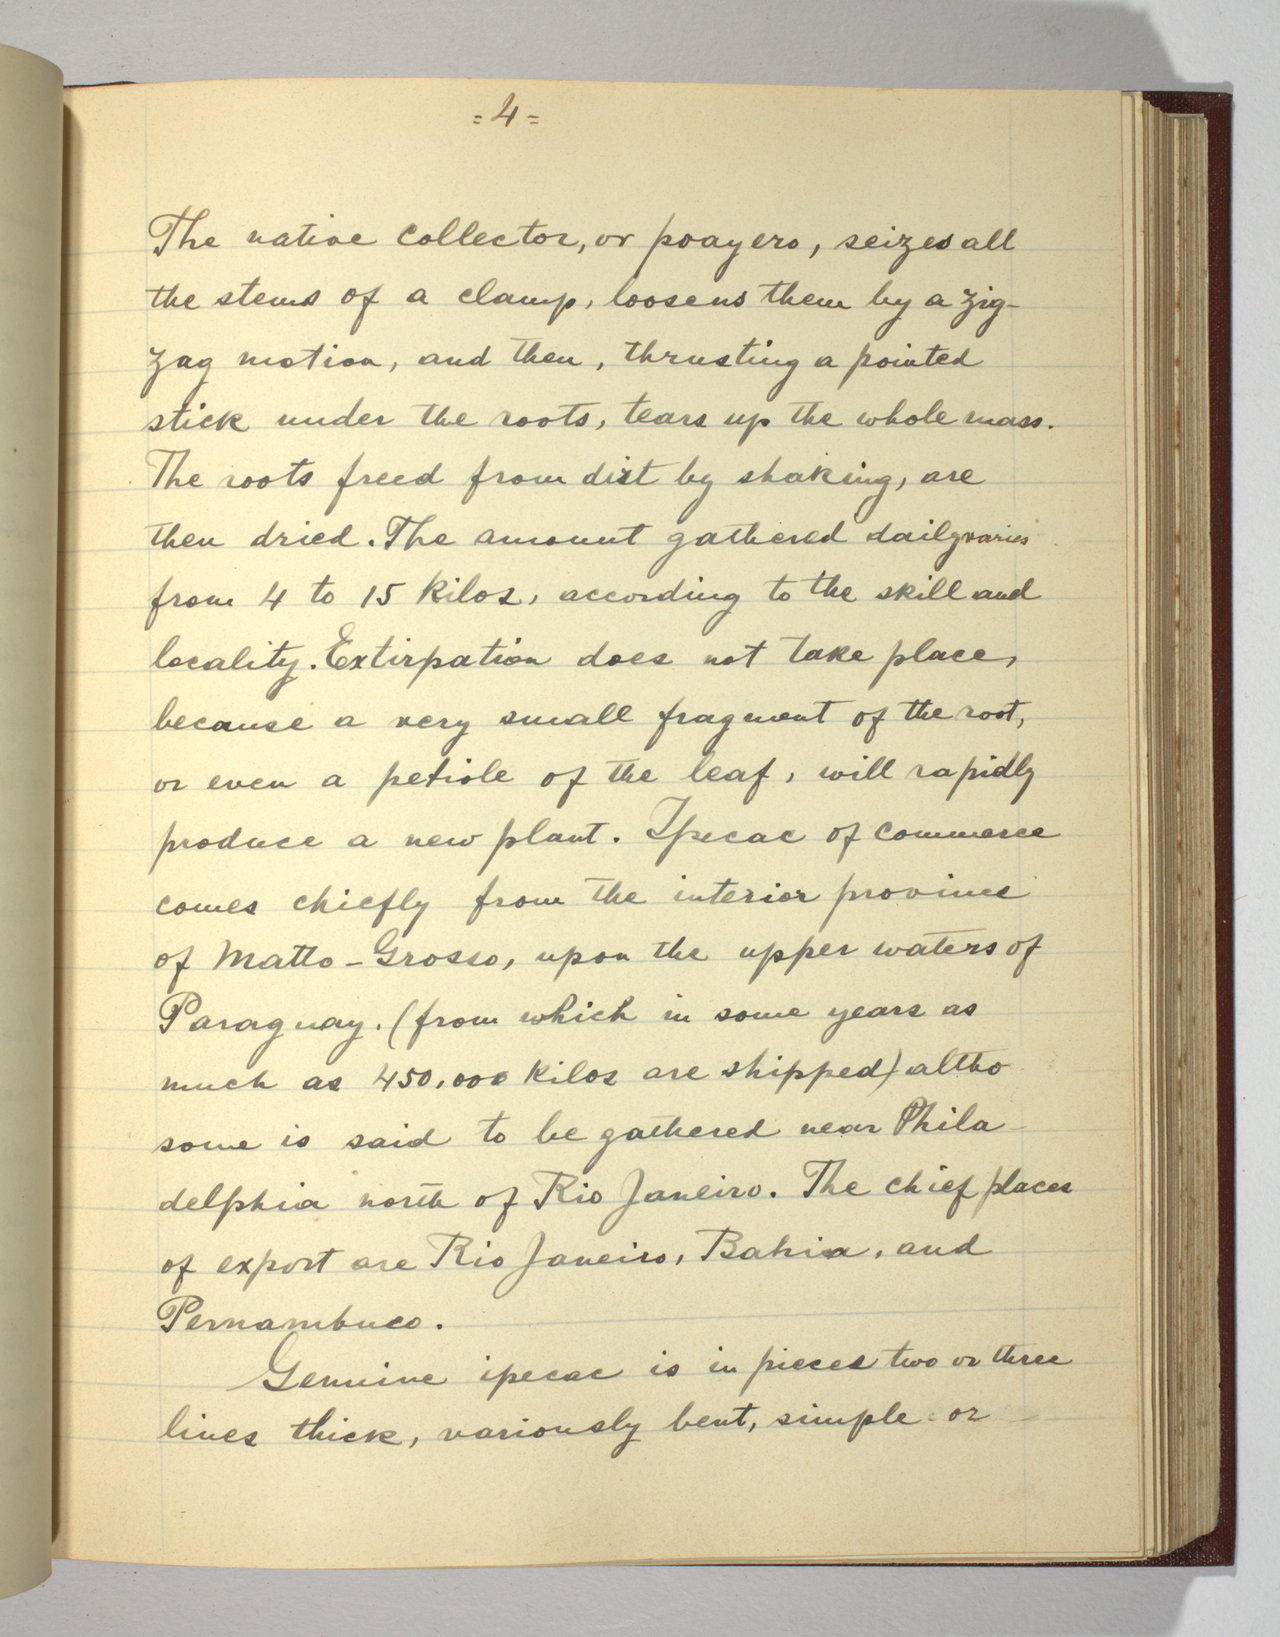 =4=
The native collector, or poayero, seizes all
the stems of a clamp, loosens them by a zig-
zag motion, and then, thrusting a pointed
stick under the roots, tears up the whole mass.
The roots freed from dirt by shaking, are
then dried. The amount gathered daily varies
from 4 to 15 kilos, according to the skill and
locality. Extirpation does not take place,
because a very small fragment of the root,
or even a petiole of the leaf, will rapidly
produce a new plant. Ipecac of commerce
comes chiefly from the interior province
of Matto-Grosso, upon the upper waters of
Paraguay. (from which in some years as
much as 450,000 kilos are shipped) altho
some is said to be gathered near Phila-
delphia north of Rio Janeiro. The chief places
of export are Rio Janeiro, Bahia, and
Pernambuco.
Genuine ipecac is in pieces two or three
lines thick, variously bent, simple or